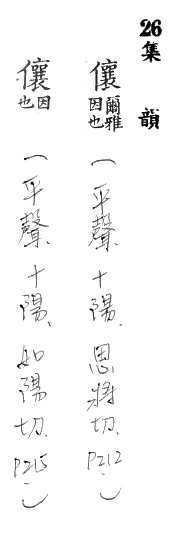 26集 韻
儴爾雅因也(平聲、十陽、思將切、P212)
儴因也(平聲、十陽、如陽切、P215)